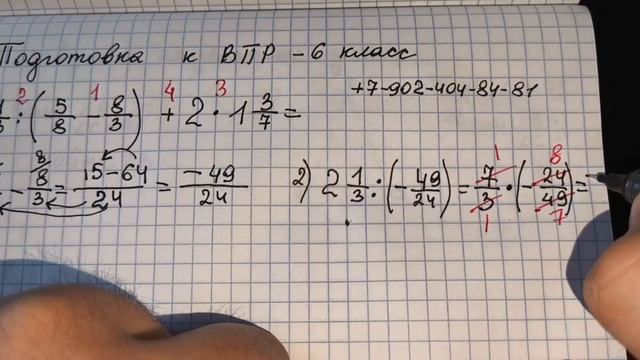 Подготовка к ВПР - 6 класс
+7-902-404-84-81
2 1 4 3
: (5/8 - 8/3) + 2 · 1 3/7 =
8
- 8/3 = 15-64/24 = -49/24 2) 2 1/3 : (- 49/24) = 7/3 · (- 24/49) = -
1 8
1 7